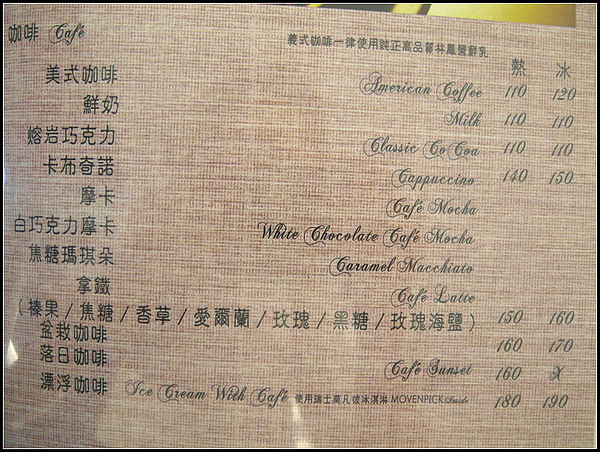 咖啡 Café
義式咖啡一律使用純正高品質林鳳營鮮乳
熱 冰
美式咖啡 American Coffee 110 120
鮮奶 Milk 110 110
熔岩巧克力 Classic CoCoa 110 110
卡布奇諾 Cappuccino 140 150
摩卡 Café Mocha
白巧克力摩卡 White Chocolate Café Mocha
焦糖瑪琪朵 Caramel Macchiato
拿鐵 Café Latte
(榛果/焦糖/香草/愛爾蘭/玫瑰/黑糖/玫瑰海鹽) 150 160
盆栽咖啡 160 170
落日咖啡 Café Sunset 160 X
漂浮咖啡 Ice Cream With Café 使用瑞士莫凡彼冰淇淋 MOVENPICK Inside 180 190